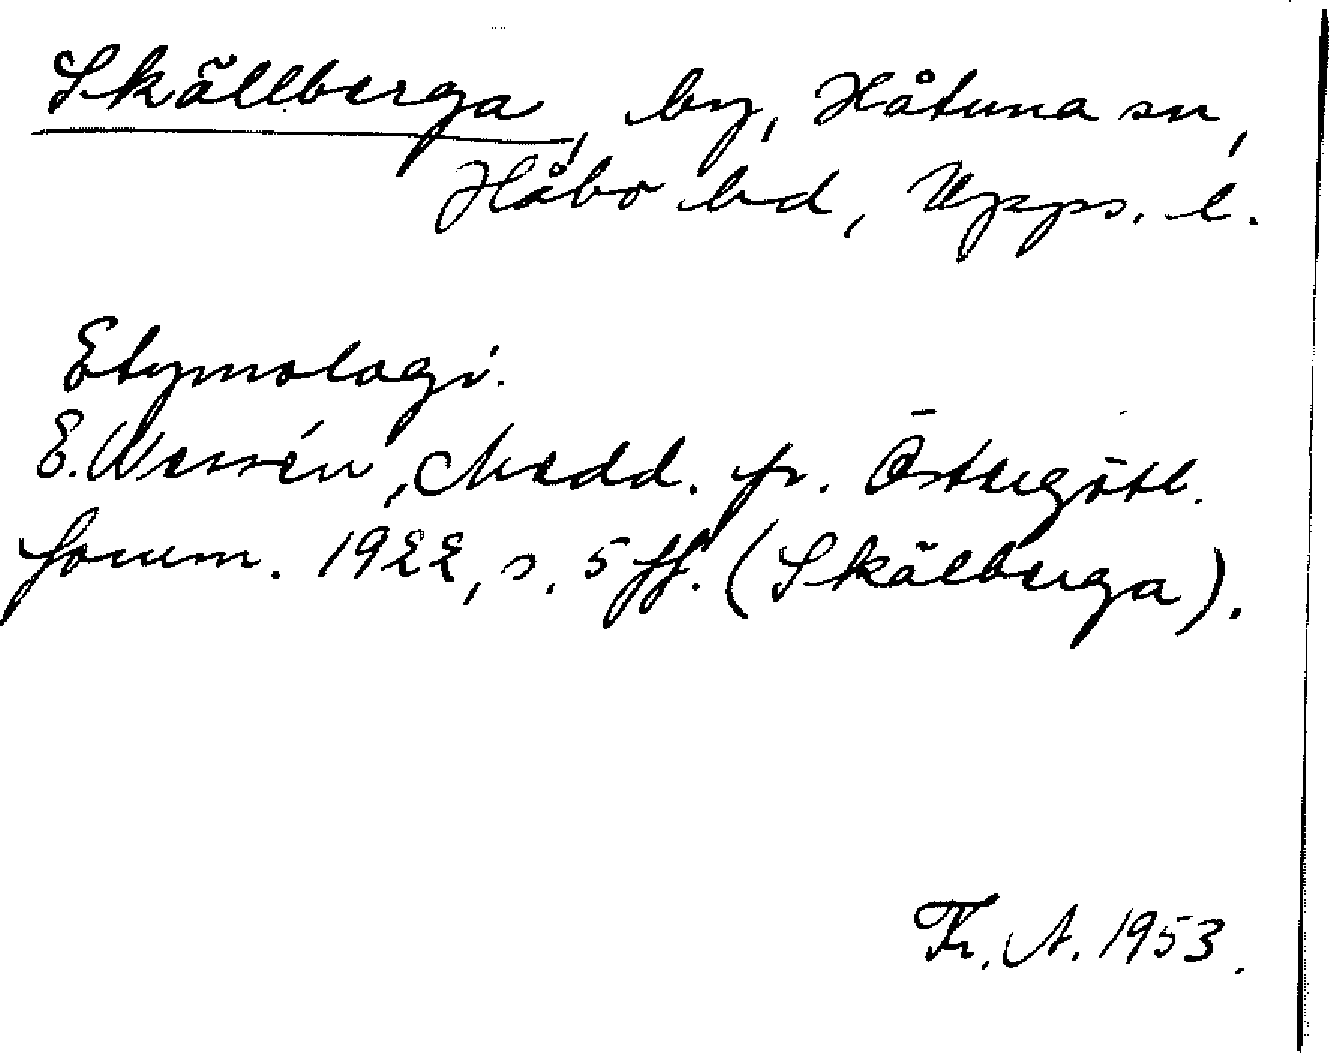 Skällberga, by, Håtuna sn,
Håbo hd, Upps. l.
Etymologi.
E. Wessén, Medd. fr. Östergötl.
fornm. 1922, s. 5 ff. (Skälberga).
Fr. A. 1953.